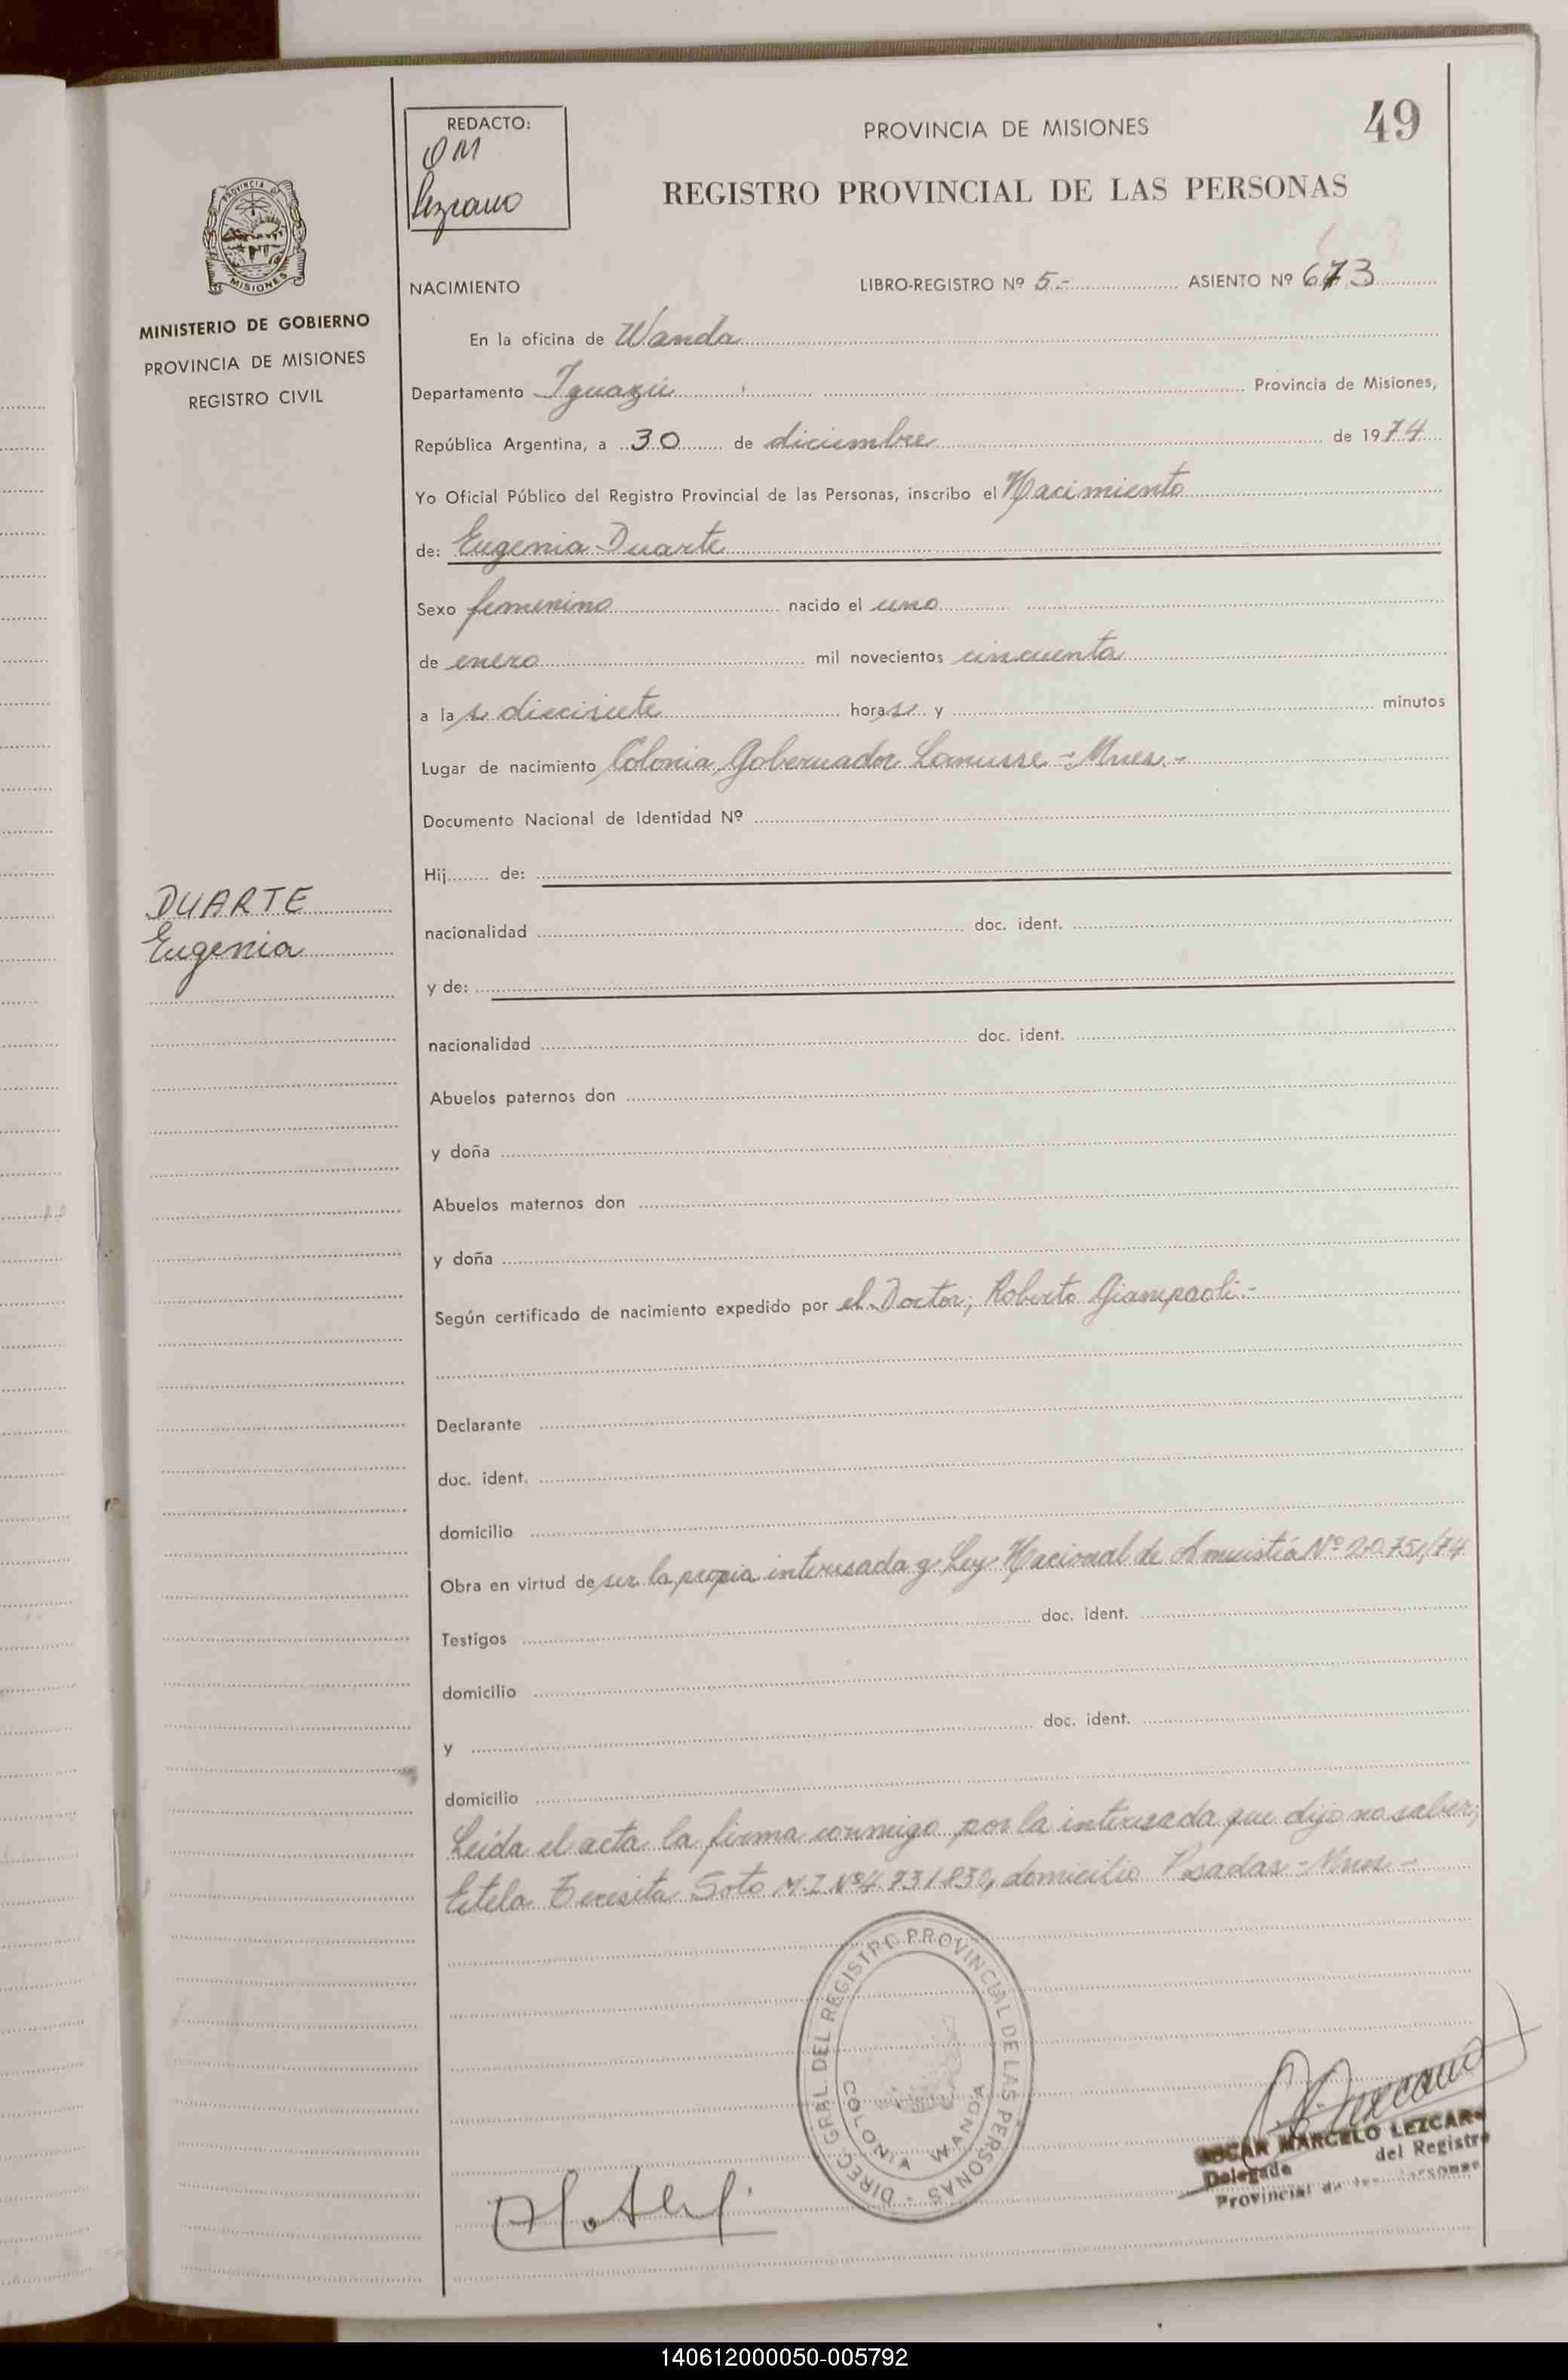 49
REDACTO:
OM
Lezcano
PROVINCIA DE MISIONES
REGISTRO PROVINCIAL DE LAS PERSONAS
PROVINCIA DE
MISIONES
MINISTERIO DE GOBIERNO
PROVINCIA DE MISIONES
REGISTRO CIVIL
NACIMIENTO LIBRO-REGISTRO Nº 5.- ASIENTO Nº 673
En la oficina de Wanda
Departamento Iguazú Provincia de Misiones,
República Argentina, a 30 de diciembre de 1974
Yo Oficial Público del Registro Provincial de las Personas, inscribo el Nacimiento
de: Eugenia Duarte
Sexo femenino nacido el uno
de enero mil novecientos cincuenta
a las diecisiete horas y minutos
Lugar de nacimiento Colonia Gobernador Lanusse - Mnes.-
Documento Nacional de Identidad Nº
Hij de:
DUARTE
Eugenia
nacionalidad doc. ident.
y de:
nacionalidad doc. ident.
Abuelos paternos don
y doña
Abuelos maternos don
y doña
Según certificado de nacimiento expedido por el Doctor; Roberto Giampaoli.-
Declarante
doc. ident.
domicilio
Obra en virtud de ser la propia interesada y Ley Nacional de Amnistía Nº 20.751/74
Testigos doc. ident.
domicilio
y doc. ident.
domicilio
Leída el acta la firma conmigo por la interesada que dijo no saber;
Estela Teresita Soto M.I. Nº 4.731.830, domicilio Posadas - Mnes -
DIREC. GRAL. DEL REGISTRO PROVINCIAL DE LAS PERSONAS
COLONIA WANDA
OSCAR MARCELO LEZCANO
Delegado del Registro
Provincial de las Personas
140612000050-005792